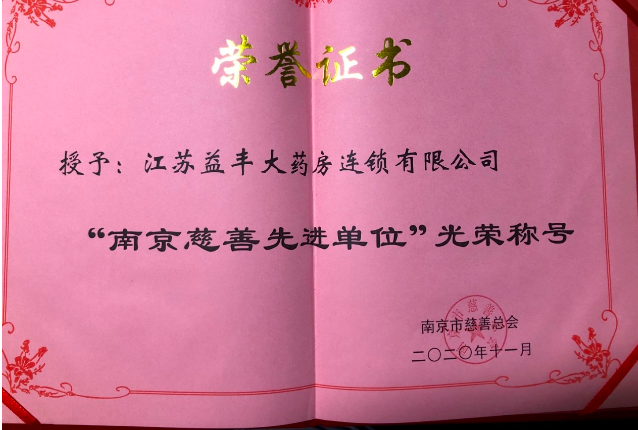 荣誉证书
授予：江苏益丰大药房连锁有限公司
“南京慈善先进单位”光荣称号
南京市慈善总会
二〇二〇年十一月